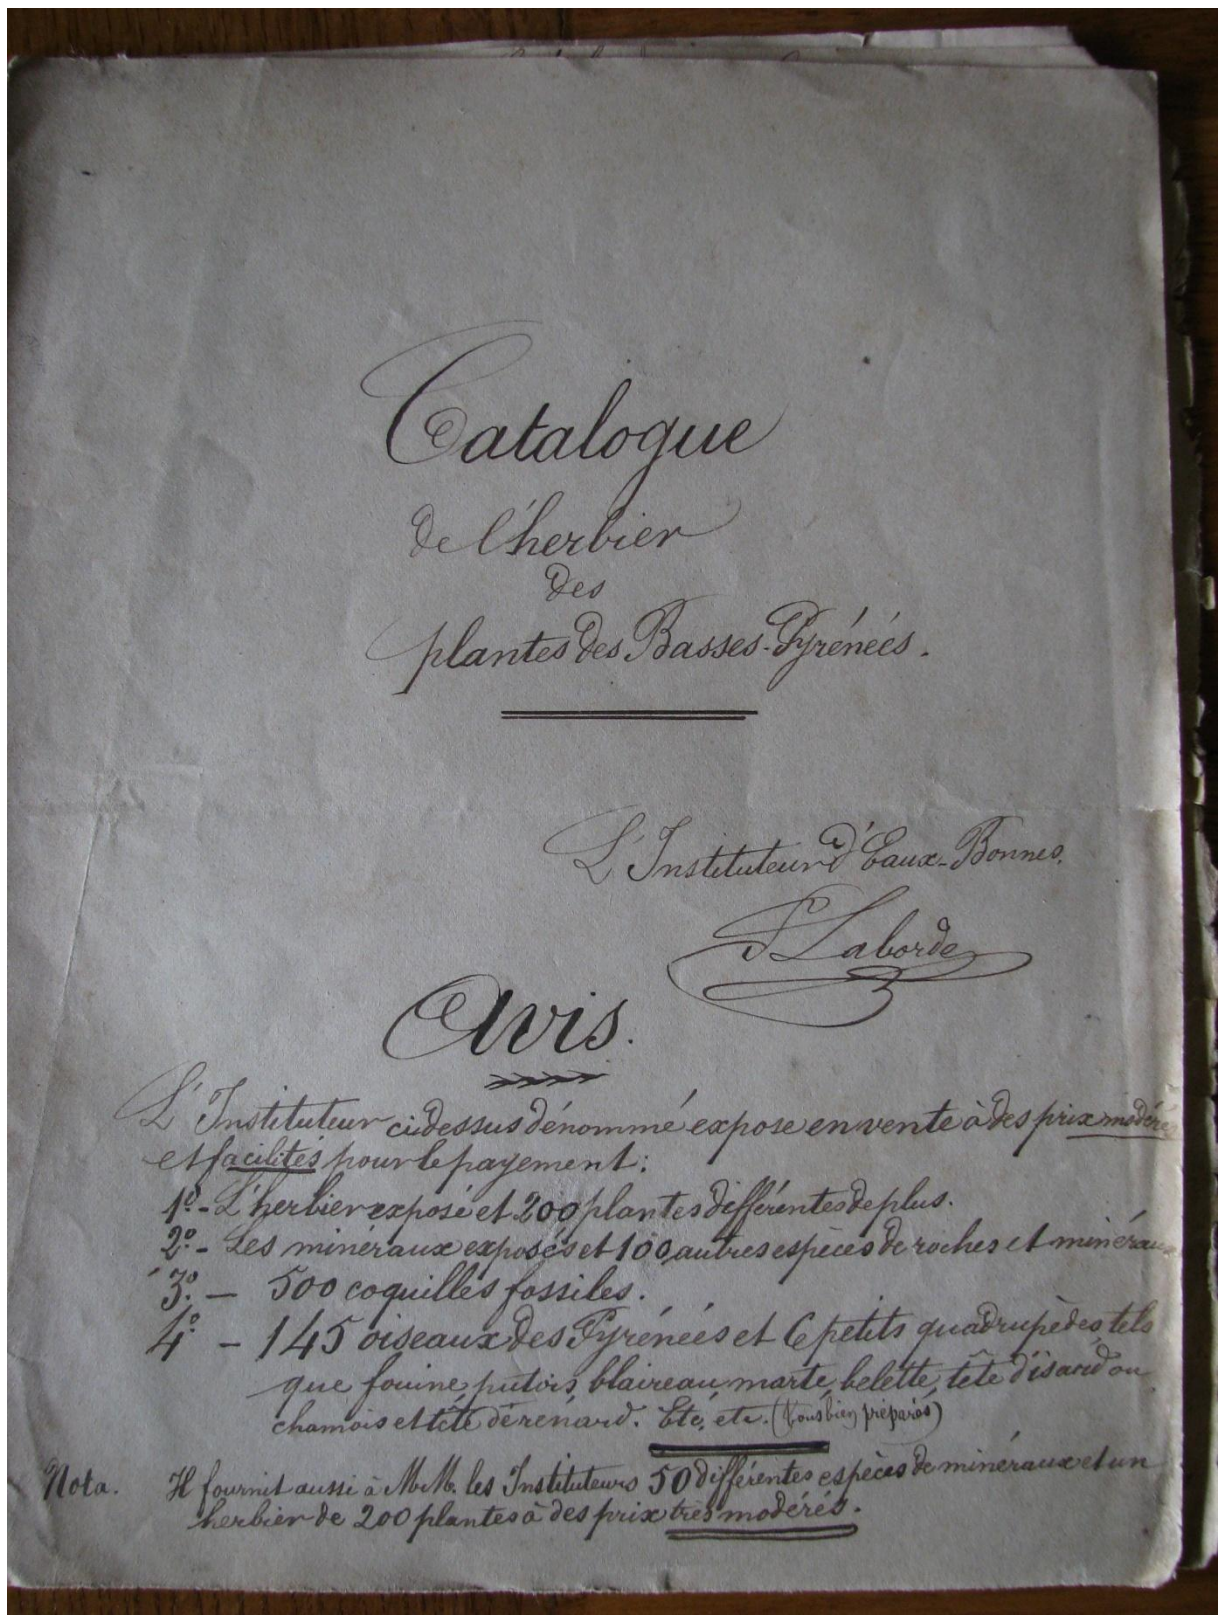 Catalogue
de l'herbier
des
plantes des Basses-Pyrénées.
L'Instituteur d'Eaux-Bonnes.
Laborde
Avis.
L'Instituteur ci-dessus dénommé expose en vente à des prix modérés
et facilités pour le payement:
1º - L'herbier exposé et 200 plantes différentes de plus.
2º - Les minéraux exposés et 100 autres espèces de roches et minéraux
3º. - 500 coquilles fossiles.
4º - 145 oiseaux des Pyrénées et 6 petits quadrupèdes tels
que fouine, putois, blaireau, marte, belette, tête d'isard ou
chamois et tête de rénard. Etc, etc. (tous bien préparés)
Nota. Il fournit aussi à M.M. les Instituteurs 50 différentes espèces de minéraux et un
herbier de 200 plantes à des prix très modérés.